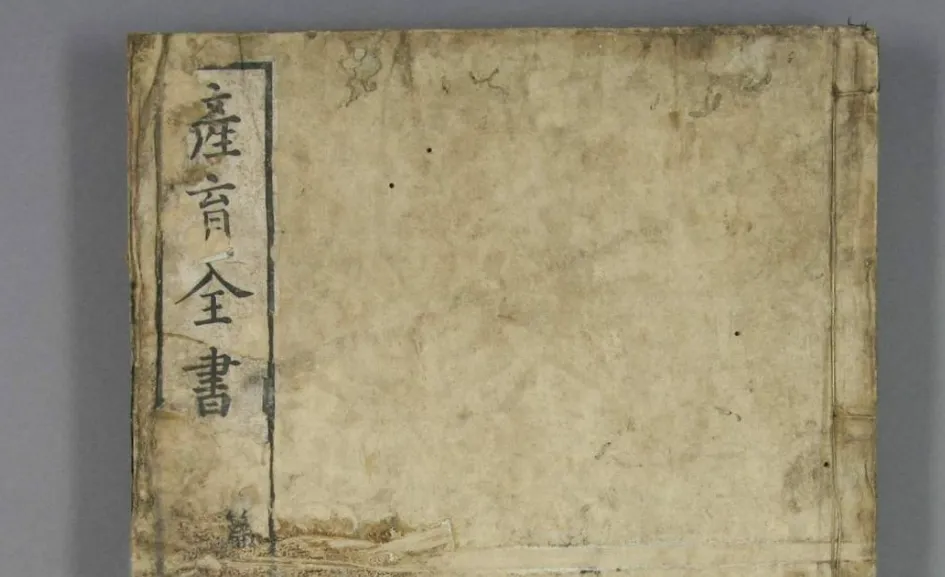 產育全書